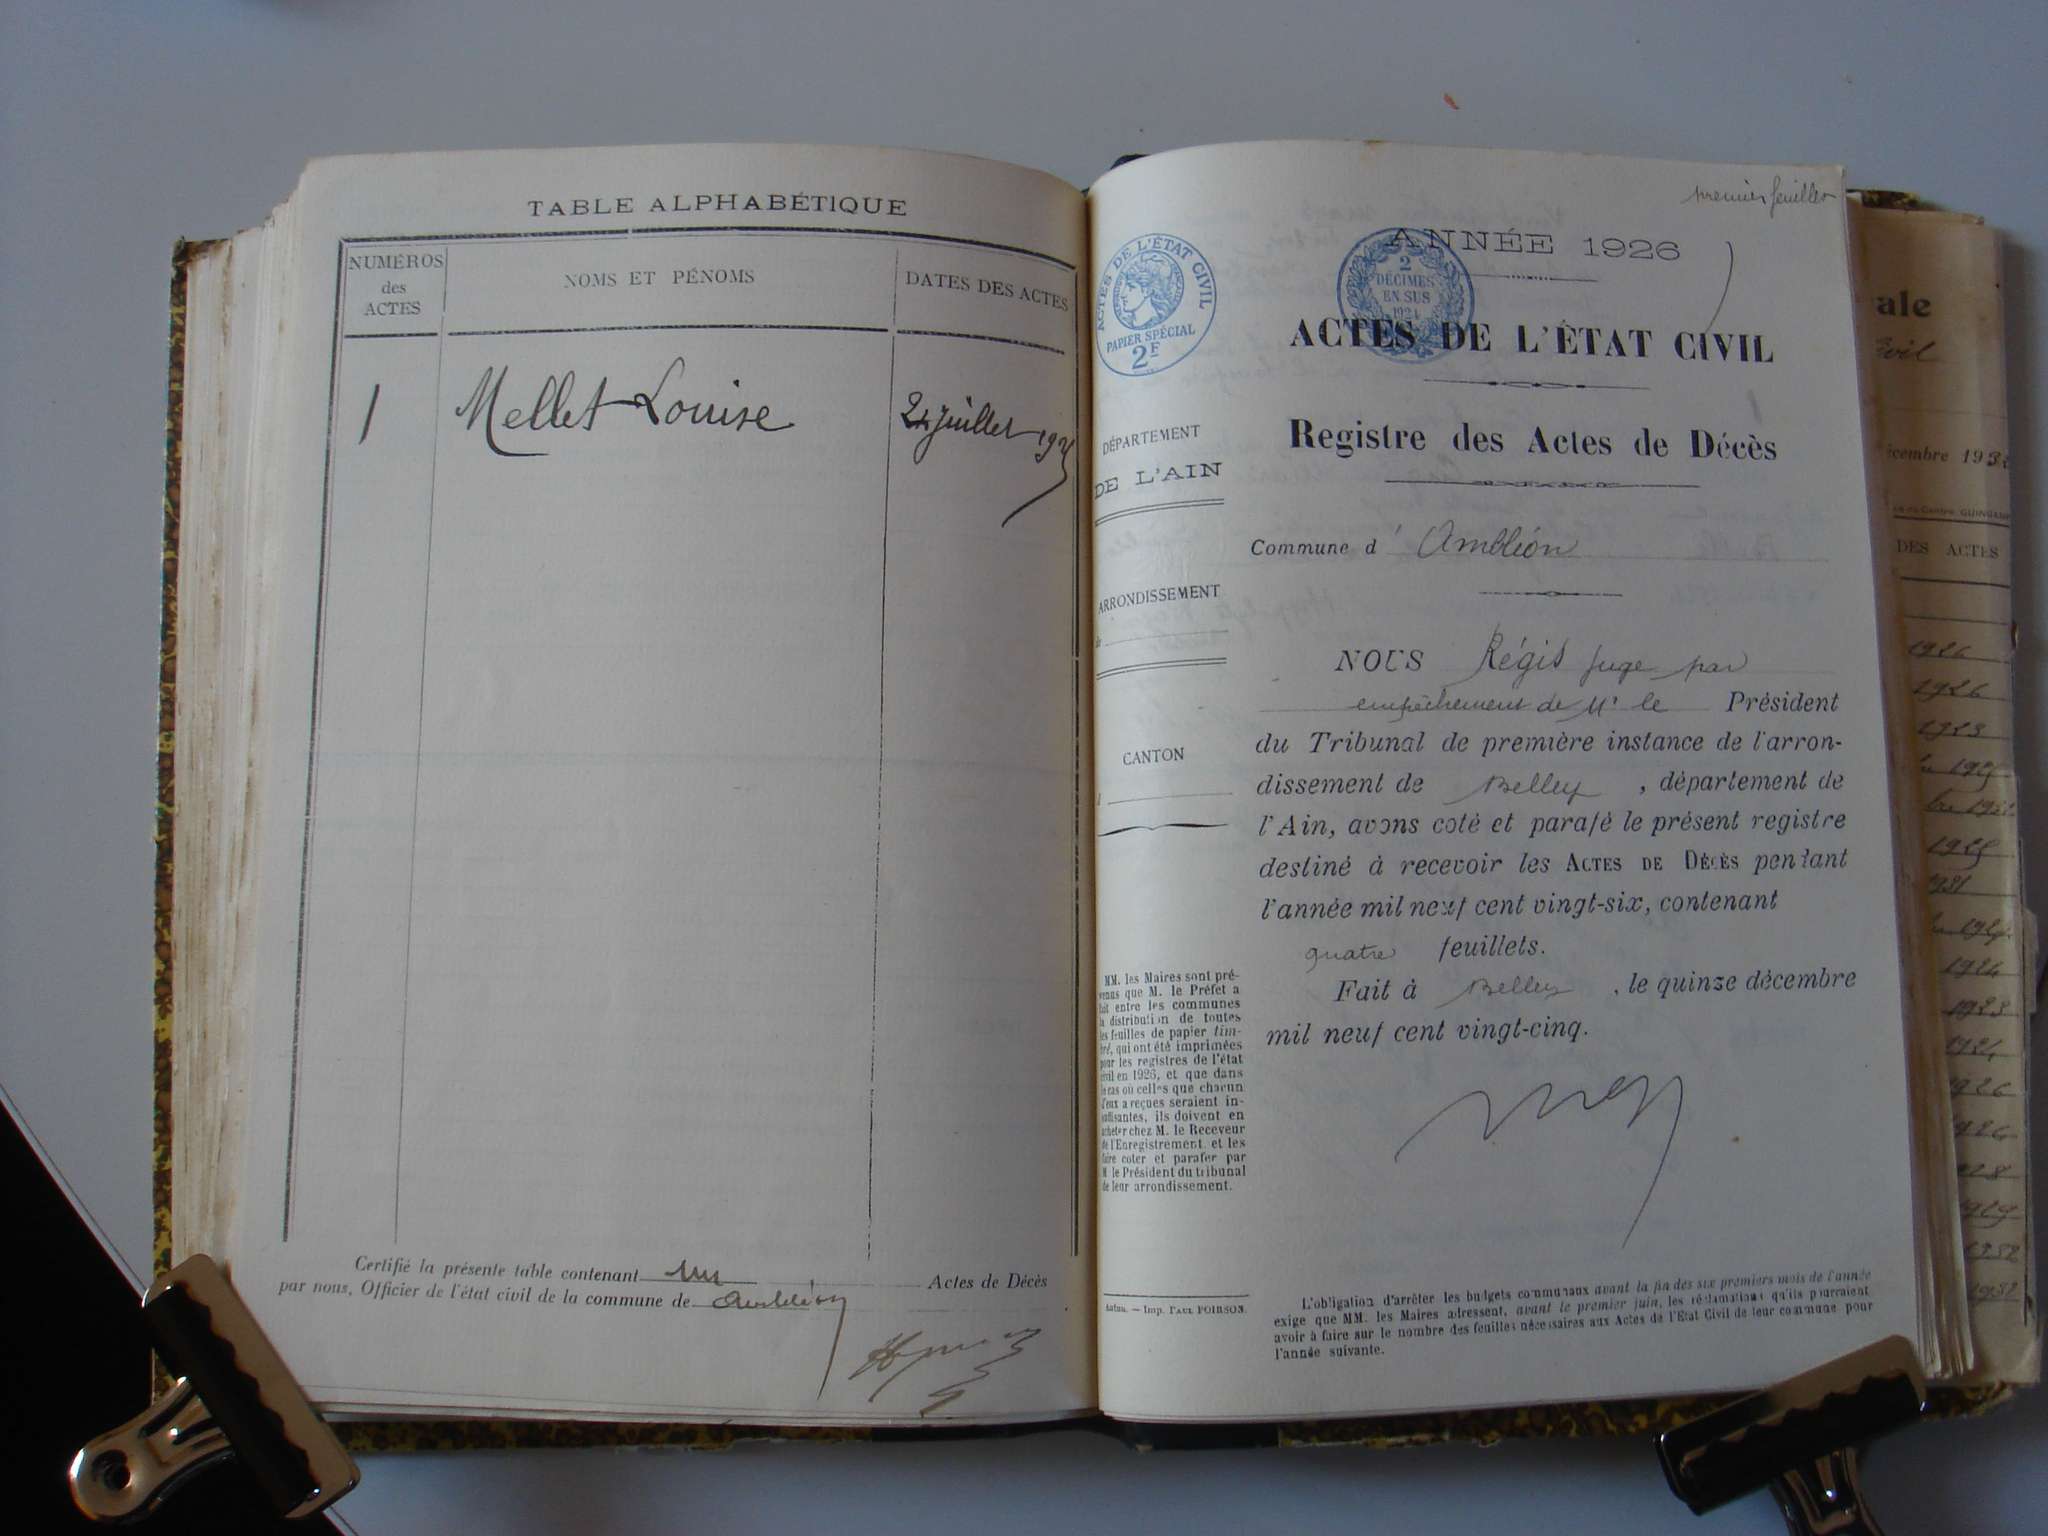 TABLE ALPHABÉTIQUE
NUMÉROS
des
ACTES
NOMS ET PÉNOMS
DATES DES ACTES
1
Mellet Louise
24 juillet 1925
Certifié la présente table contenant un Actes de Décès
par nous, Officier de l'état civil de la commune de Ambléon
premier feuillet
ANNÉE 1926
ACTES DE L'ÉTAT CIVIL
PAPIER SPÉCIAL
2F
2
DÉCIMES
EN SUS
1924
ACTES DE L'ÉTAT CIVIL
Registre des Actes de Décès
DÉPARTEMENT
DE L'AIN
ARRONDISSEMENT
de
CANTON
d
Commune d' Ambléon
NOUS Régis juge par
empêchement de Mr le Président
du Tribunal de première instance de l'arron-
dissement de Belley, département de
l'Ain, avons coté et parafé le présent registre
destiné à recevoir les ACTES DE DÉCÈS pendant
l'année mil neuf cent vingt-six, contenant
quatre feuillets.
Fait à Belley, le quinze décembre
mil neuf cent vingt-cinq.
MM. les Maires sont pré-
venus que M. le Préfet a
fait entre les communes
la distribution de toutes
les feuilles de papier tim-
bré, qui ont été imprimées
pour les registres de l'état
civil en 1926, et que dans
le cas où celles que chacun
d'eux a reçues seraient in-
suffisantes, ils doivent en
acheter chez M. le Receveur
de l'Enregistrement et les
faire coter et parafer par
M. le Président du tribunal
de leur arrondissement.
Autun. — Imp. PAUL POIRSON.
L'obligation d'arrêter les budgets communaux avant la fin des six premiers mois de l'année
exige que MM. les Maires adressent, avant le premier juin, les réclamations qu'ils pourraient
avoir à faire sur le nombre des feuilles nécessaires aux Actes de l'Etat Civil de leur commune pour
l'année suivante.
ale
ivil
écembre 1932
GUINGAMP
DES ACTES
1926
1926
1923
1925
1932
1925
1931
1924
1924
1923
1924
1926
1926
1928
1929
1932
1932